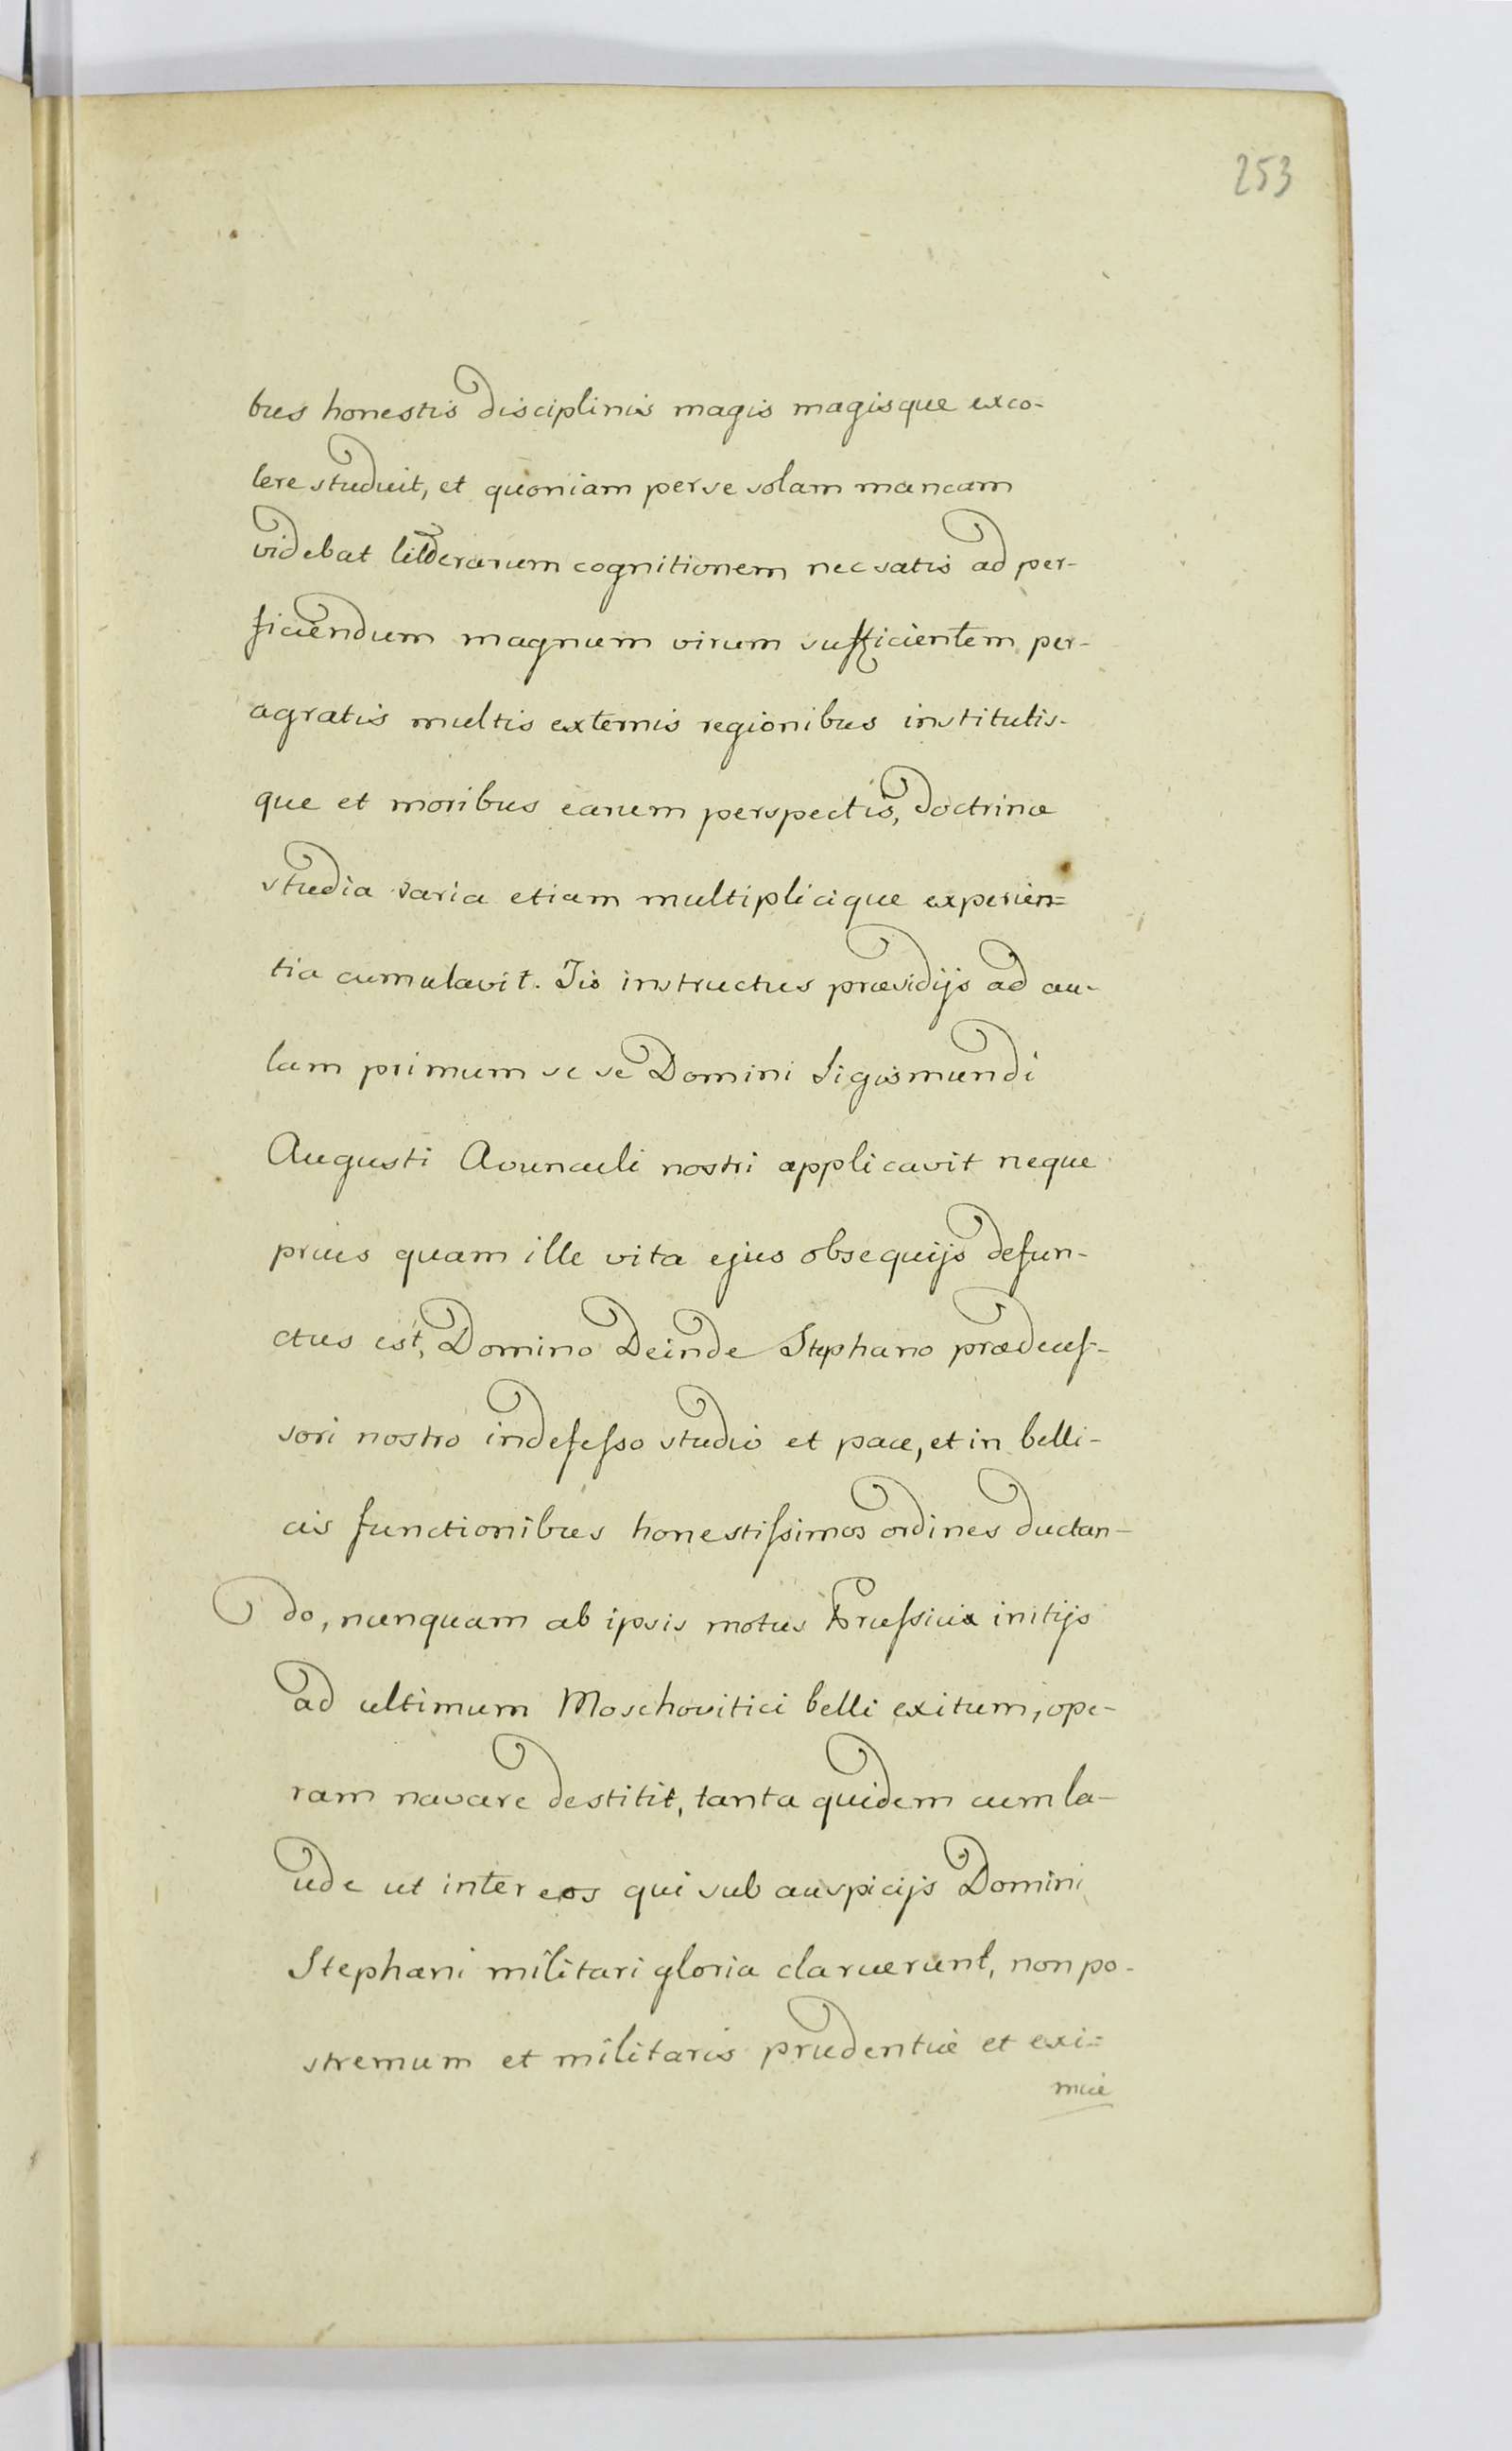 253
bus honestis disciplinis magis magisque exco-
lere studuit, et quoniam per se solam mancam
videbat litterarum cognitionem nec satis ad per-
ficiendum magnum virum sufficientem, per-
agratis multis externis regionibus institutis-
que et moribus earum perspectis, doctrinæ
studia varia etiam multiplicique experien=
tia cumulavit. Iis instructus præsidijs ad au-
lam primum se se Domini Sigismundi
Augusti Avunculi nostri applicavit neque
prius quam ille vita ejus obsequijs defun-
ctus est, Domino Deinde Stephano prædeces-
sori nostro indefesso studio et pace, et in belli-
cis functionibus honestissimos ordines ductan-
do, nunquam ab ipsis motus Prussici initijs
ad ultimum Moschovitici belli exitum, ope-
ram navare destitit, tanta quidem cum la-
ude ut inter eos qui sub auspicijs Domini
Stephani militari gloria claruerunt, non po-
stremum et militaris prudentiæ et exi=
miæ